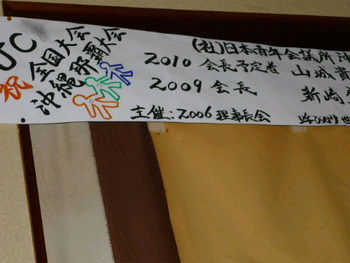 JC
祝 全国大会
沖縄那覇大会
(社)日本青年会議所沖
2010 会長予定者 山城
2009 会長 新崎
主催:2006理事長会